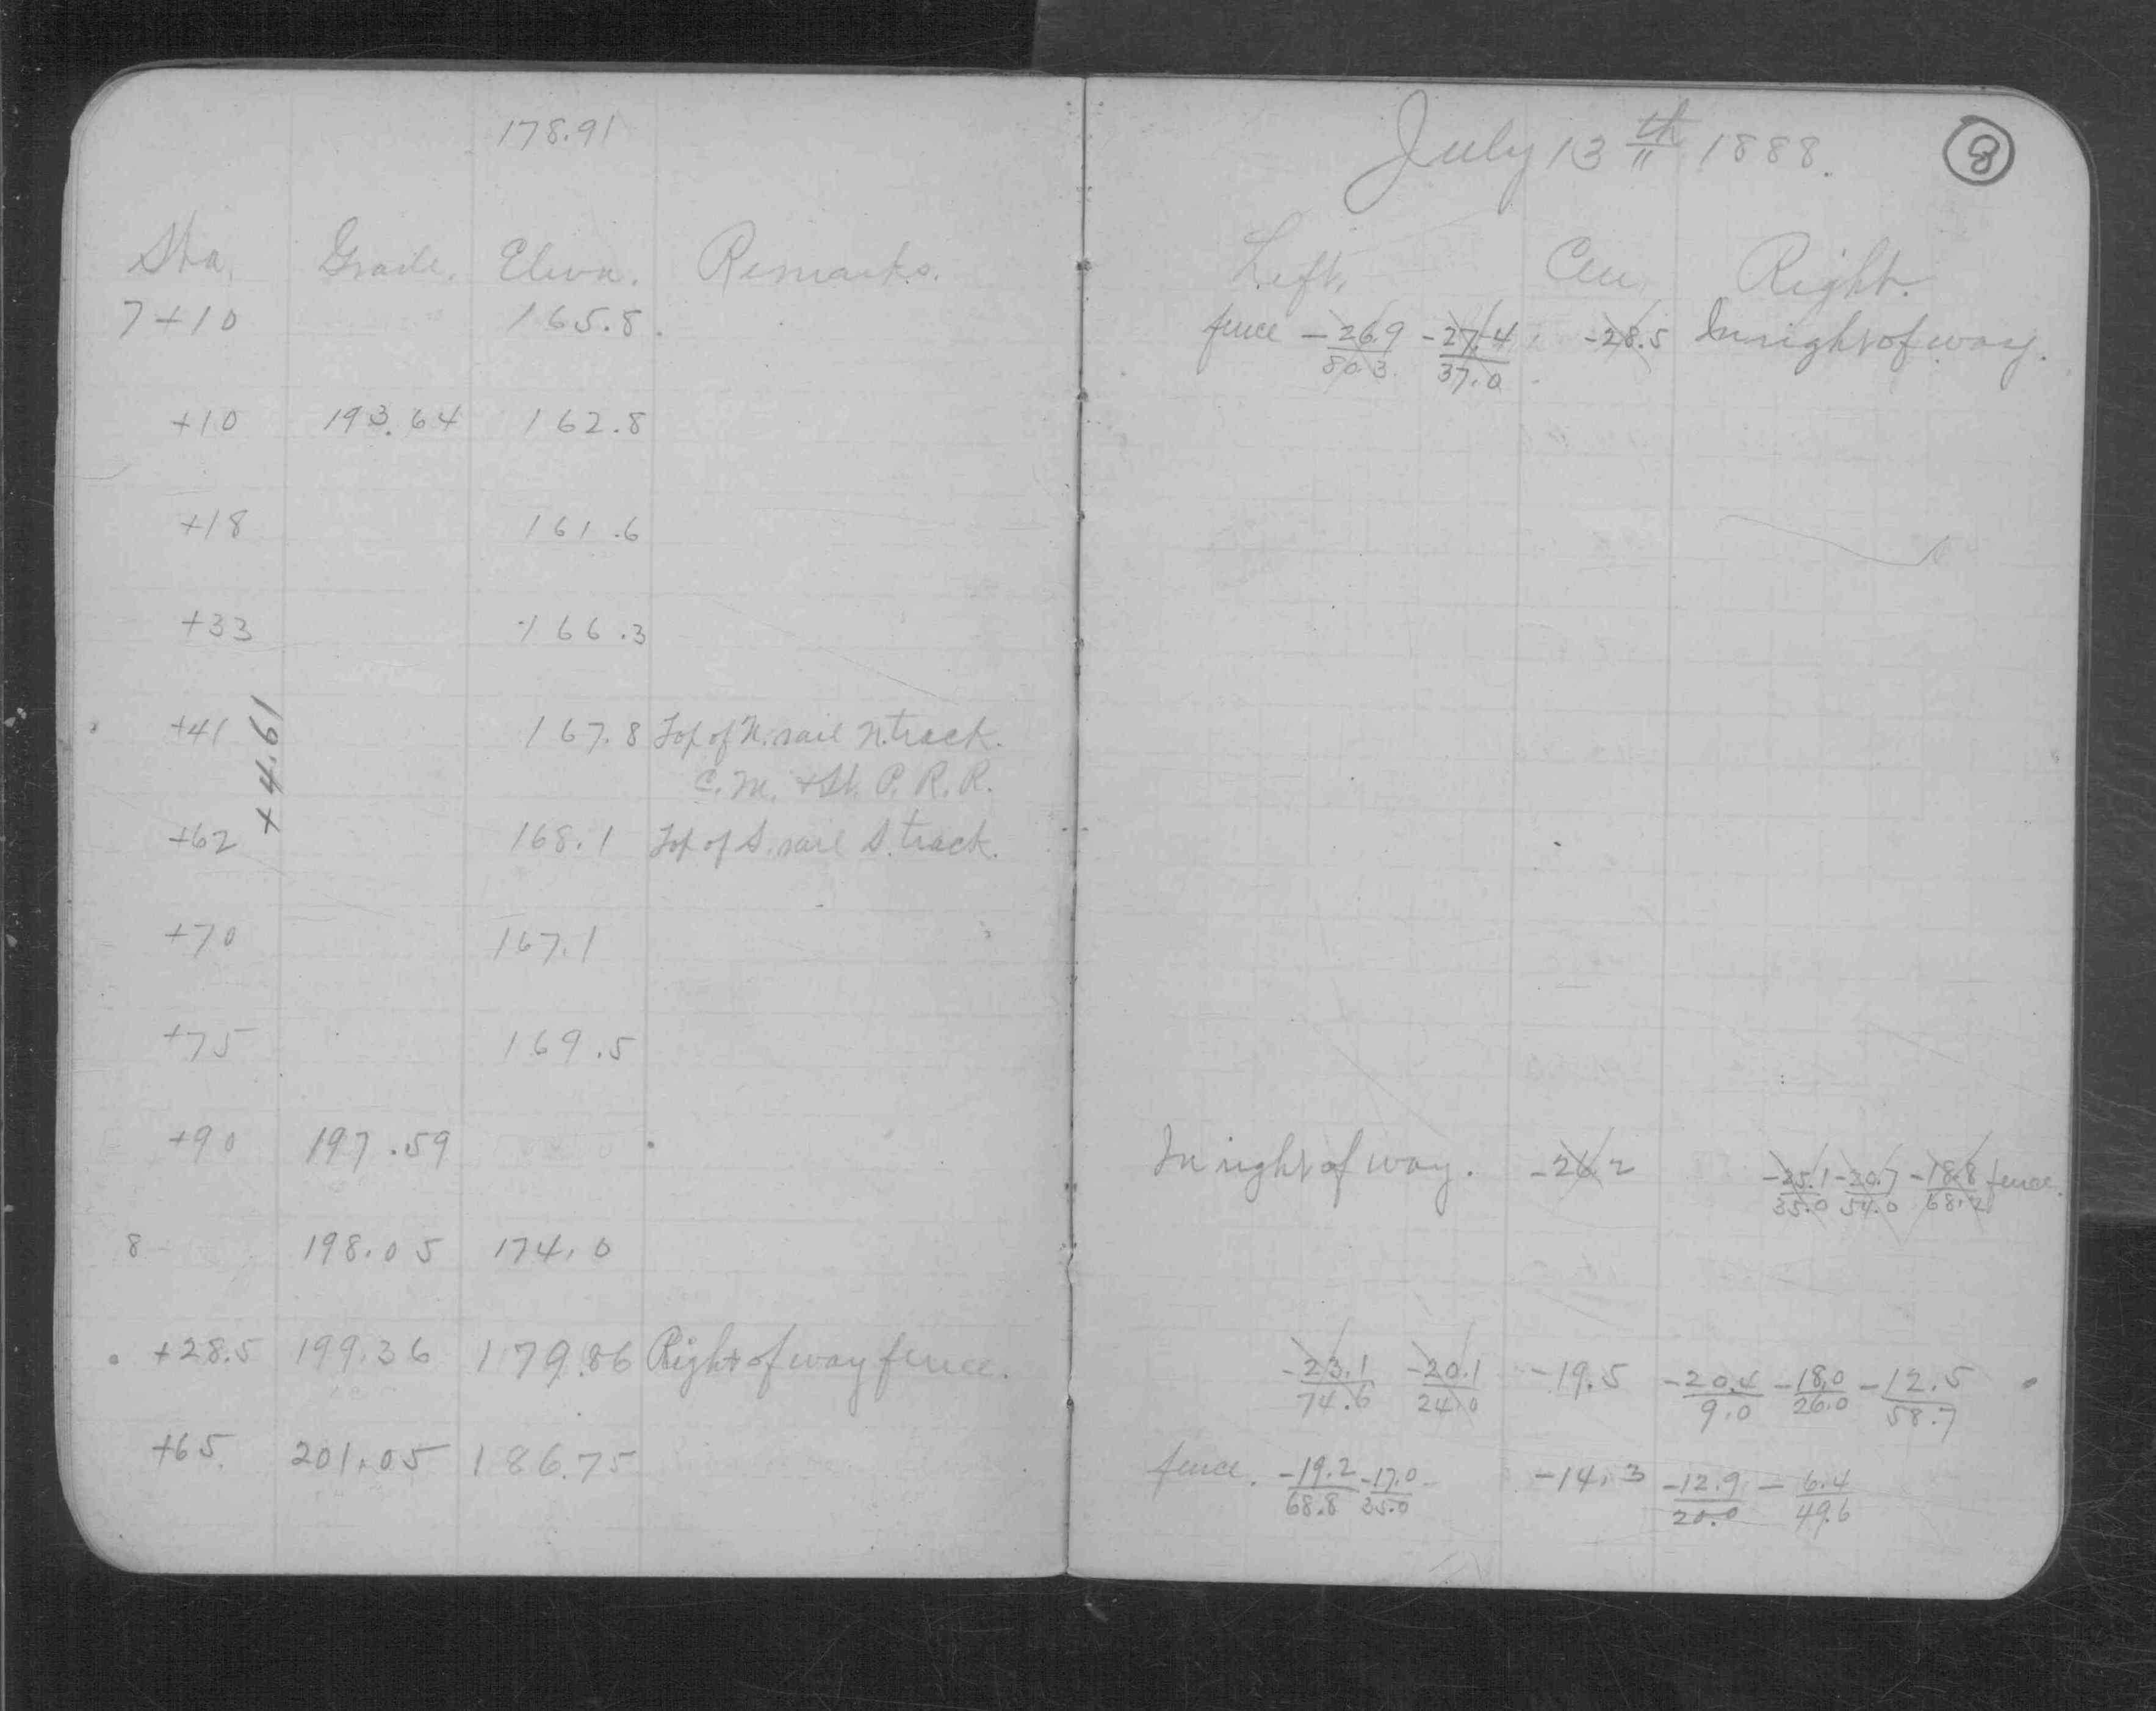 178.91
Sta. Grade. Eleva. Remarks.
7+10 165.8
+10 193.64 162.8
+18 161.6
+33 166.3
+41 167.8 Top of N. rail N. track.
C. M. & St. P. R. R.
+4.61
+62 168.1 Top of S. rail S. track.
+70 167.1
+75 169.5
+90 197.59
8 198.05 174.0
+28.5 199.36 179.86 Right of way fence.
+65. 201.05 186.75
July 13th 1888.
8
Left. Cen. Right.
fence -26.9/80.3 -27.4/37.0 -28.5 In right of way.
In right of way. -26.2 -25.1/35.0 -20.7/54.0 -18.8/68.2 fence.
-23.1/74.6 -20.1/24.0 -19.5 -20.4/9.0 -18.0/26.0 -12.5/58.7
fence. -19.2/68.8 -17.0/35.0 -14.3 -12.9/20.0 -6.4/49.6